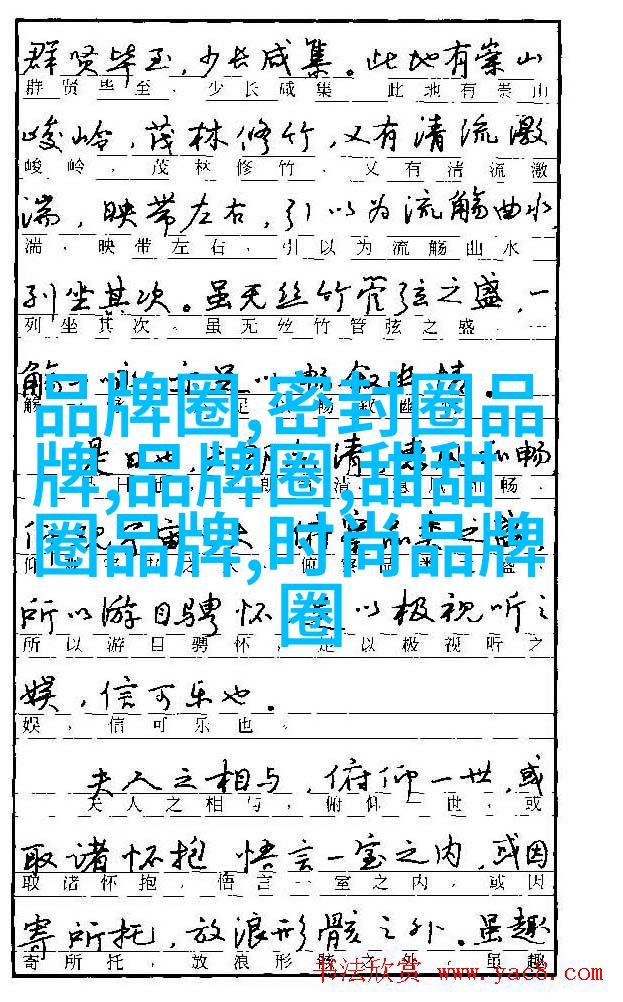 群贤毕至,少长咸集。此地有崇山
群贤毕至、少长咸集 此地有崇山
峻岭,茂林修竹,又有清流激
峻岭,茂林修竹、又有清流激
湍,映带左右,引以为流觞曲水,
湍,映带左右,引以为流觞曲水
列坐其次。虽无丝竹管弦之盛,一
列坐其次。虽无丝竹管弦之盛
觞一
觞
品牌圈,密封圈品
牌,品牌圈,甜甜
圈品牌,时尚品牌
圈
所以游目骋怀 以极视听之
所以游目骋怀,足以极视听之
娱,信可乐也。
娱,信可乐也。
夫人之相与,俯仰一世,或
夫人之相与,俯仰一世,或
取诸怀抱 悟言一室之内,或因
取诸怀抱,悟言一室之内,或因
寄所托,放浪形骸之外。虽趣
寄所托,放浪形骸之外。虽趣
书法欣赏 www.yac8.com